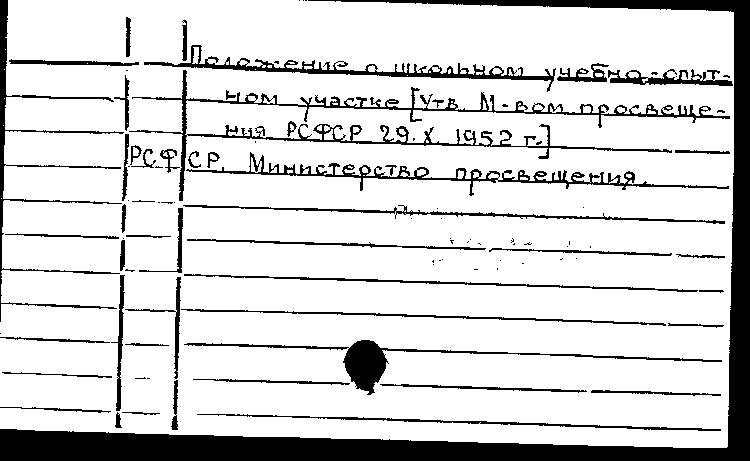 Положение о школьном учебно-опыт-
ном участке [Утв. М-вом просвеще-
ния РСФСР 29.X.1952 г.]
РСФСР. Министерство просвещения.